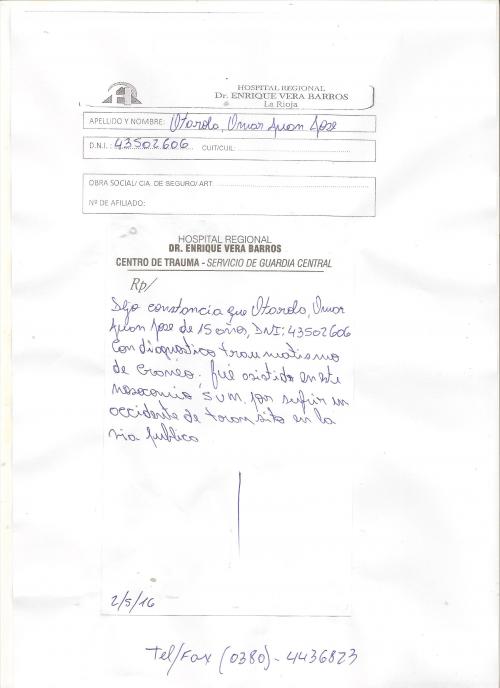 HOSPITAL REGIONAL
Dr. ENRIQUE VERA BARROS
La Rioja
APELLIDO Y NOMBRE: Otarola, Omar Juan Jose
D.N.I.: 43502606 CUIT/CUIL:
OBRA SOCIAL/ CIA. DE SEGURO/ ART
Nº DE AFILIADO:
HOSPITAL REGIONAL
DR. ENRIQUE VERA BARROS
CENTRO DE TRAUMA - SERVICIO DE GUARDIA CENTRAL
Rp/
Dejo constancia que Otarola, Omar
Juan Jose de 15 años, DNI: 43502606
Con diagnostico traumatismo
de Craneo; fué asistido en este
nosocomio, S.V.M. por sufrir un
accidente de transito en la
via publica
2/5/16
Tel/Fax (0380) - 4436823